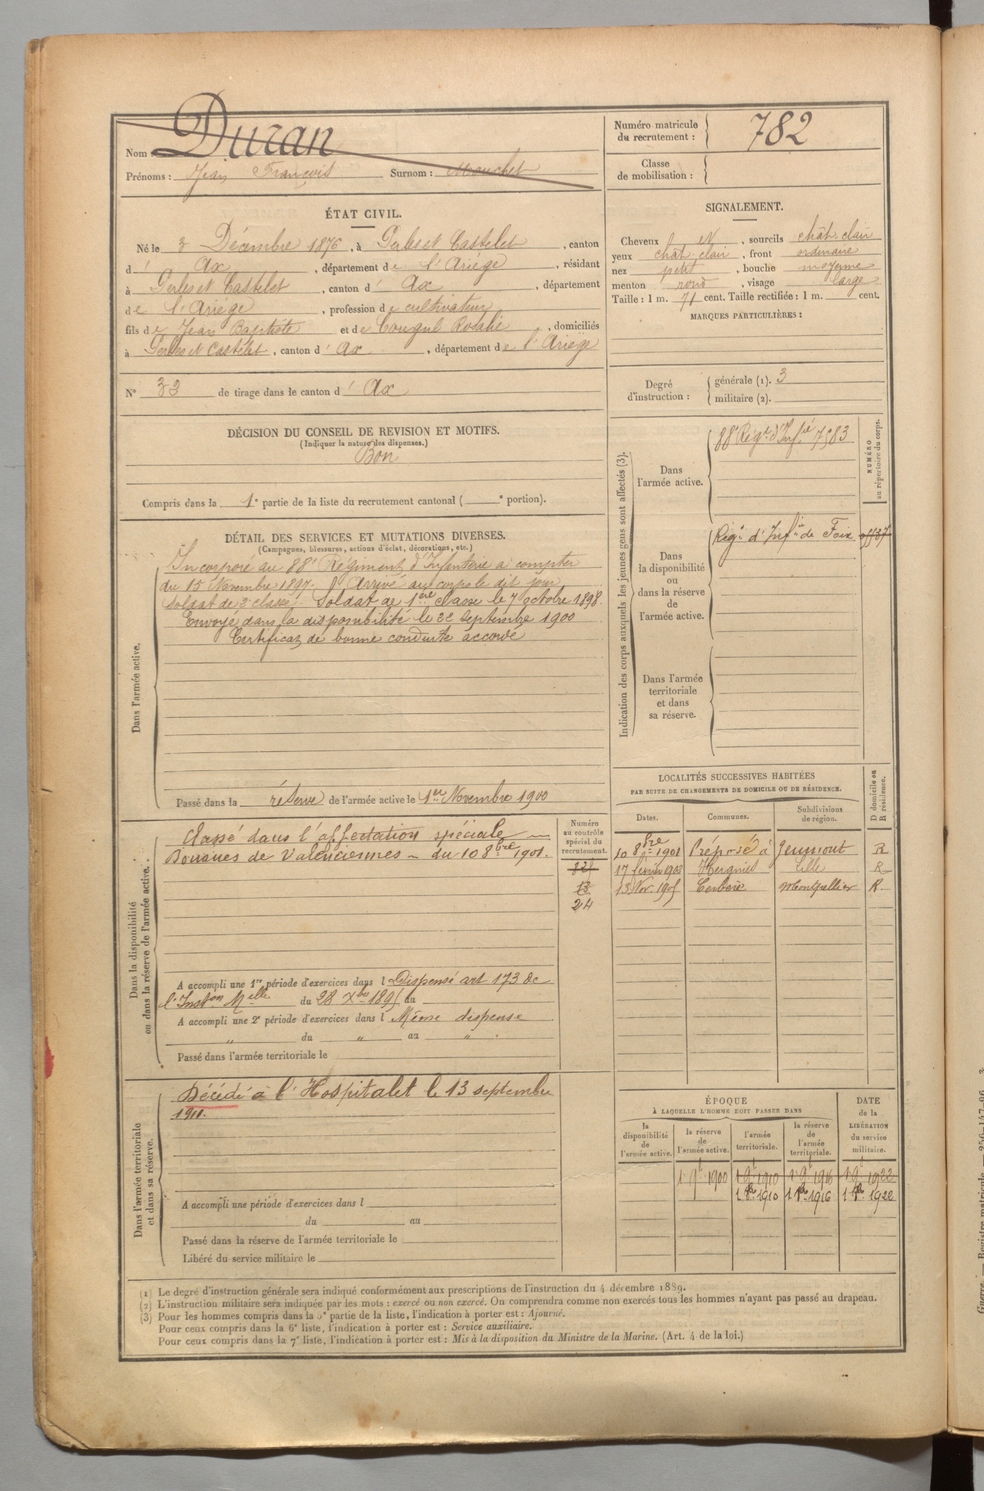 Nom : Duran
Prénoms : Jean François Surnom : Mouchet
Numéro matricule du recrutement : 782
Classe de mobilisation :
ÉTAT CIVIL.
Né le 3 Décembre 1876, à Perles et Castelet, canton
d' Ax, département de l'Ariège, résidant
à Perles et Castelet, canton d' Ax, département
de l'Ariège, profession de cultivateur
fils de Jean Baptiste et de Cougul Rosalie, domiciliés
à Perles et Castelet, canton d' Ax, département de l'Ariège
N° 33 de tirage dans le canton d' Ax
SIGNALEMENT.
Cheveux et N, sourcils chât. clair
yeux chât. clair, front ordinaire
nez petit, bouche moyenne
menton rond, visage large
Taille : 1 m. 71 cent. Taille rectifiée : 1 m. cent.
MARQUES PARTICULIÈRES :
Degré d'instruction : générale (1). 3
militaire (2).
DÉCISION DU CONSEIL DE REVISION ET MOTIFS.
(Indiquer la nature des dispenses.)
Bon
Compris dans la 1e partie de la liste du recrutement cantonal ( e portion).
DÉTAIL DES SERVICES ET MUTATIONS DIVERSES.
(Campagnes, blessures, actions d'éclat, décorations, etc.)
Dans l'armée active.
Incorporé au 88e Régiment d'Infanterie à compter
du 15 Novembre 1897. Arrivé au corps le dit jour
soldat de 2e classe. Soldat de 1ère classe le 7 octobre 1898
Envoyé dans la disponibilité le 22 Septembre 1900
Certificat de bonne conduite accordé
Passé dans la réserve de l'armée active le 1er Novembre 1900
Indication des corps auxquels les jeunes gens sont affectés (3).
NUMÉRO au répertoire du corps.
Dans l'armée active.
88e Régt d'Infrie 7583
Dans la disponibilité ou dans la réserve de l'armée active.
Régt d'Infie de Foix
Dans l'armée territoriale et dans sa réserve.
Dans la disponibilité ou dans la réserve de l'armée active.
Classé dans l'affectation spéciale
Douanes de Valenciennes du 10 8bre 1901.
Numéro au contrôle spécial du recrutement.
13
24
A accompli une 1re période d'exercices dans l Dispensé art 173 de
l'Inston Melle du 28 Xbre 1895 au
A accompli une 2e période d'exercices dans l Même dispense
" du " au "
Passé dans l'armée territoriale le
LOCALITÉS SUCCESSIVES HABITÉES
PAR SUITE DE CHANGEMENTS DE DOMICILE OU DE RÉSIDENCE.
Dates. Communes. Subdivisions de région. D domicile ou R résidence.
10 8bre 1901 Préposé à Jeumont R
17 février 1903 Hergnies Lille R
13 Nov. 1905 Cerbère Montpellier R
Dans l'armée territoriale et dans sa réserve.
Décédé à l'Hospitalet le 13 septembre
1911.
A accompli une période d'exercices dans l
du au
Passé dans la réserve de l'armée territoriale le
Libéré du service militaire le
ÉPOQUE
À LAQUELLE L'HOMME DOIT PASSER DANS
la disponibilité de l'armée active. la réserve de l'armée active. l'armée territoriale. la réserve de l'armée territoriale. DATE de la LIBÉRATION du service militaire.
1 9e 1900 1 9e 1910 1 9e 1916 1 9e 1922
1 8bre 1910 1 8bre 1916 1 8bre 1922
(1) Le degré d'instruction générale sera indiqué conformément aux prescriptions de l'instruction du 4 décembre 1889.
(2) L'instruction militaire sera indiquée par les mots : exercé ou non exercé. On comprendra comme non exercés tous les hommes n'ayant pas passé au drapeau.
(3) Pour les hommes compris dans la 5e partie de la liste, l'indication à porter est : Ajourné.
Pour ceux compris dans la 6e liste, l'indication à porter est : Service auxiliaire.
Pour ceux compris dans la 7e liste, l'indication à porter est : Mis à la disposition du Ministre de la Marine. (Art. 4 de la loi.)